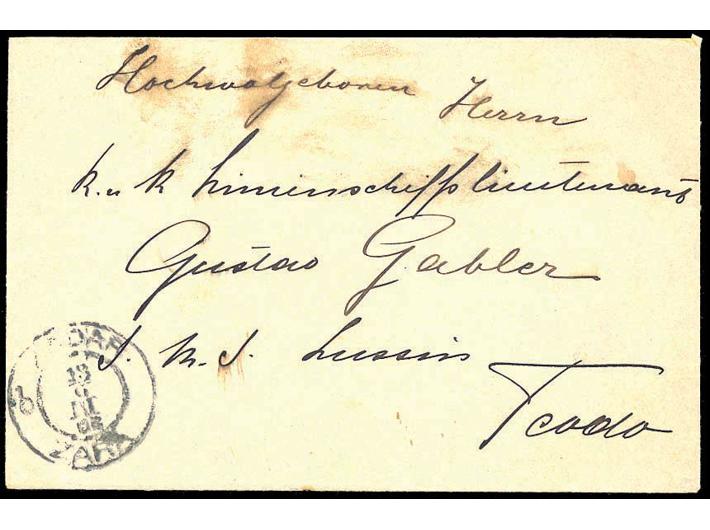 Hochwolgeboren Herrn
k. u k Linienschiffslieutenant
Gustav Gabler
S. M. S. Lussin
Teodo
ZARA
13